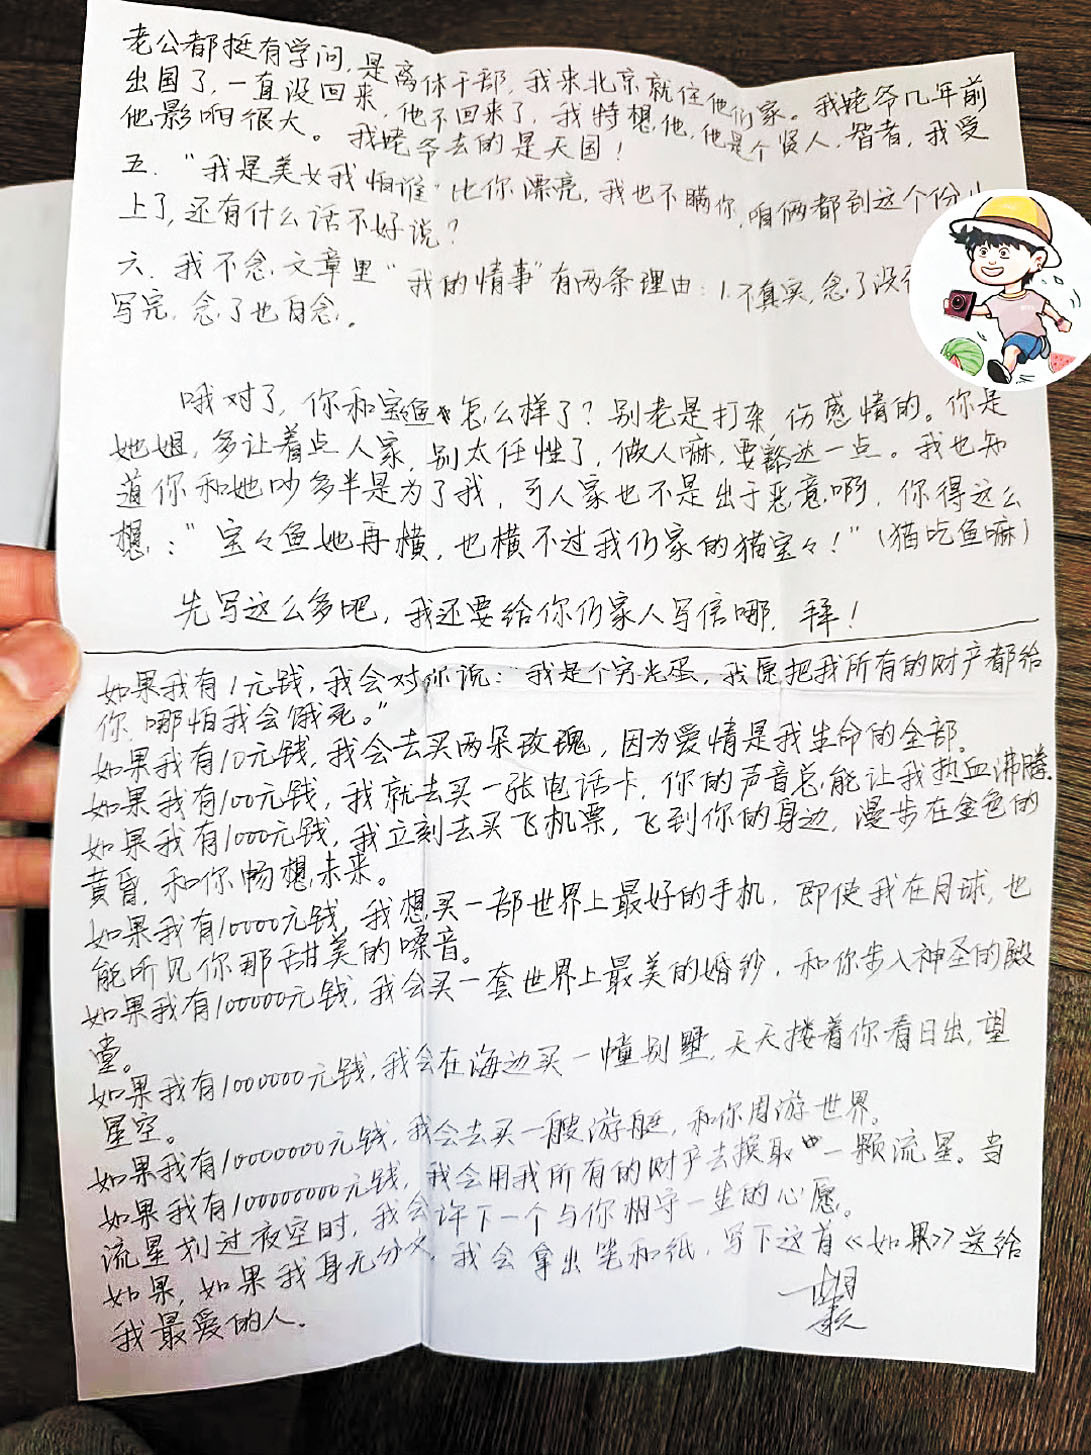 老公都挺有学问，是离休干部，我来北京就住他们家。我姥爷几年前
出国了，一直没回来，他不回来了，我特想他，他是个贤人，智者，我受
他影响很大。我姥爷去的是天国！
五．“我是美女我怕谁”比你漂亮，我也不瞒你，咱俩都到这个份儿
上了，还有什么话不好说？
六．我不念文章里“我的情事”有两条理由：1.不真实，念了没
写完，念了也白念。
哦对了，你和宝鱼怎么样了？别老是打架，伤感情的。你是
她姐，多让着点人家，别太任性了，做人嘛，要豁达一点。我也知
道你和她吵多半是为了我，可人家也不是出于恶意啊，你得这么
想：“宝々鱼她再横，也横不过我们家的猫宝々！”（猫吃鱼嘛）
先写这么多吧，我还要给你们家人写信哪，拜！
如果我有1元钱，我会对你说：“我是个穷光蛋，我愿把我所有的财产都给
你，哪怕我会饿死。”
如果我有10元钱，我会去买两朵玫瑰，因为爱情是我生命的全部。
如果我有100元钱，我就去买一张电话卡，你的声音总能让我热血沸腾。
如果我有1000元钱，我立刻去买飞机票，飞到你的身边，漫步在金色的
黄昏，和你畅想未来。
如果我有10000元钱，我想买一部世界上最好的手机，即使我在月球，也
能听见你那甜美的嗓音。
如果我有100000元钱，我会买一套世界上最美的婚纱，和你步入神圣的殿
堂。
如果我有1000000元钱，我会在海边买一幢别墅，天天搂着你看日出，望
星空。
如果我有10000000元钱，我会去买一艘游艇，和你周游世界。
如果我有100000000元钱，我会用我所有的财产去换取一颗流星。当
流星划过夜空时，我会许下一个与你相守一生的心愿。
如果，如果我身无分文，我会拿出笔和纸，写下这首《如果》送给
我最爱的人。